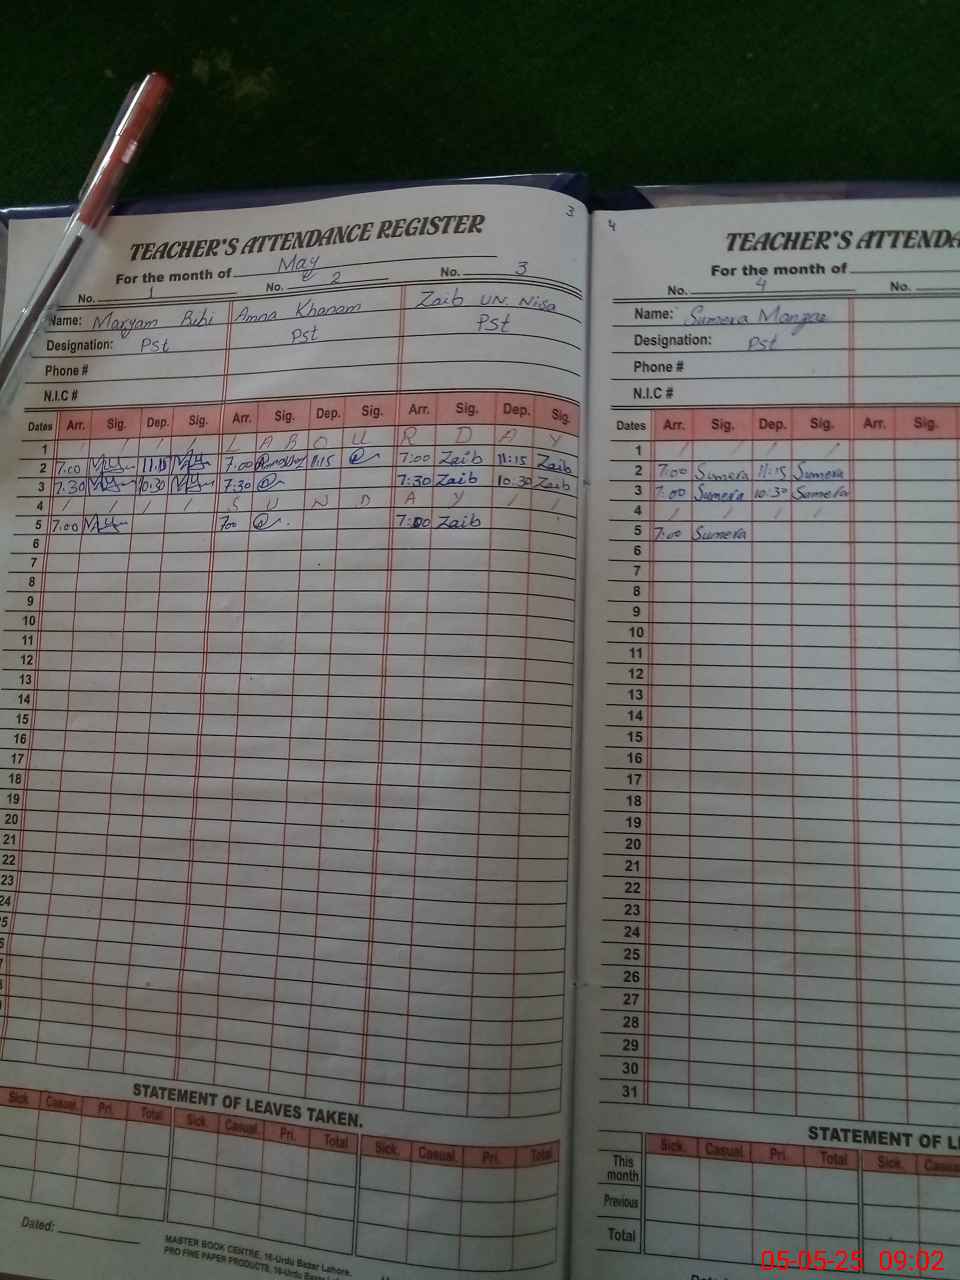 3
TEACHER'S ATTENDANCE REGISTER
For the month of May
No. 1 No. 2 No. 3
Name: Maryam Bibi Amna Khanam Zaib UN. Nisa
Designation: Pst Pst Pst
Phone #
N.I.C #
Dates Arr. Sig. Dep. Sig. Arr. Sig. Dep. Sig. Arr. Sig. Dep. Sig.
1 / / / / L A B O U R D A Y
2 7:00 11:15 7:00 11:15 7:00 Zaib 11:15 Zaib
3 7:30 10:30 7:30 7:30 Zaib 10:30 Zaib
4 / / / / S U N D A Y / /
5 7:00 7:00 7:00 Zaib
6
7
8
9
10
11
12
13
14
15
16
17
18
19
20
21
22
23
24
STATEMENT OF LEAVES TAKEN.
Sick Casual. Pri. Total Sick. Casual. Pri. Total Sick. Casual. Pri. Total
Dated:
MASTER BOOK CENTRE, 16-Urdu Bazar Lahore.
PRO FINE PAPER PRODUCTS, 16-Urdu Bazar Lahore.
4
TEACHER'S ATTENDA
For the month of
No. 4 No.
Name: Sumera Manzar
Designation: Pst
Phone #
N.I.C #
Dates Arr. Sig. Dep. Sig. Arr. Sig.
1 / / / /
2 7:00 Sumera 11:15 Sumera
3 7:00 Sumera 10:30 Sumera
4 / / / /
5 7:00 Sumera
6
7
8
9
10
11
12
13
14
15
16
17
18
19
20
21
22
23
24
25
26
27
28
29
30
31
STATEMENT OF L
Sick. Casual. Pri. Total Sick. Casua
This month
Previous
Total
05-05-25 09:02